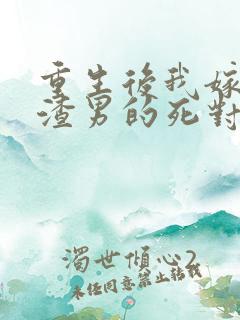 重生後我嫁
渣男的死對
濁世傾心2
未任同意禁止轉載